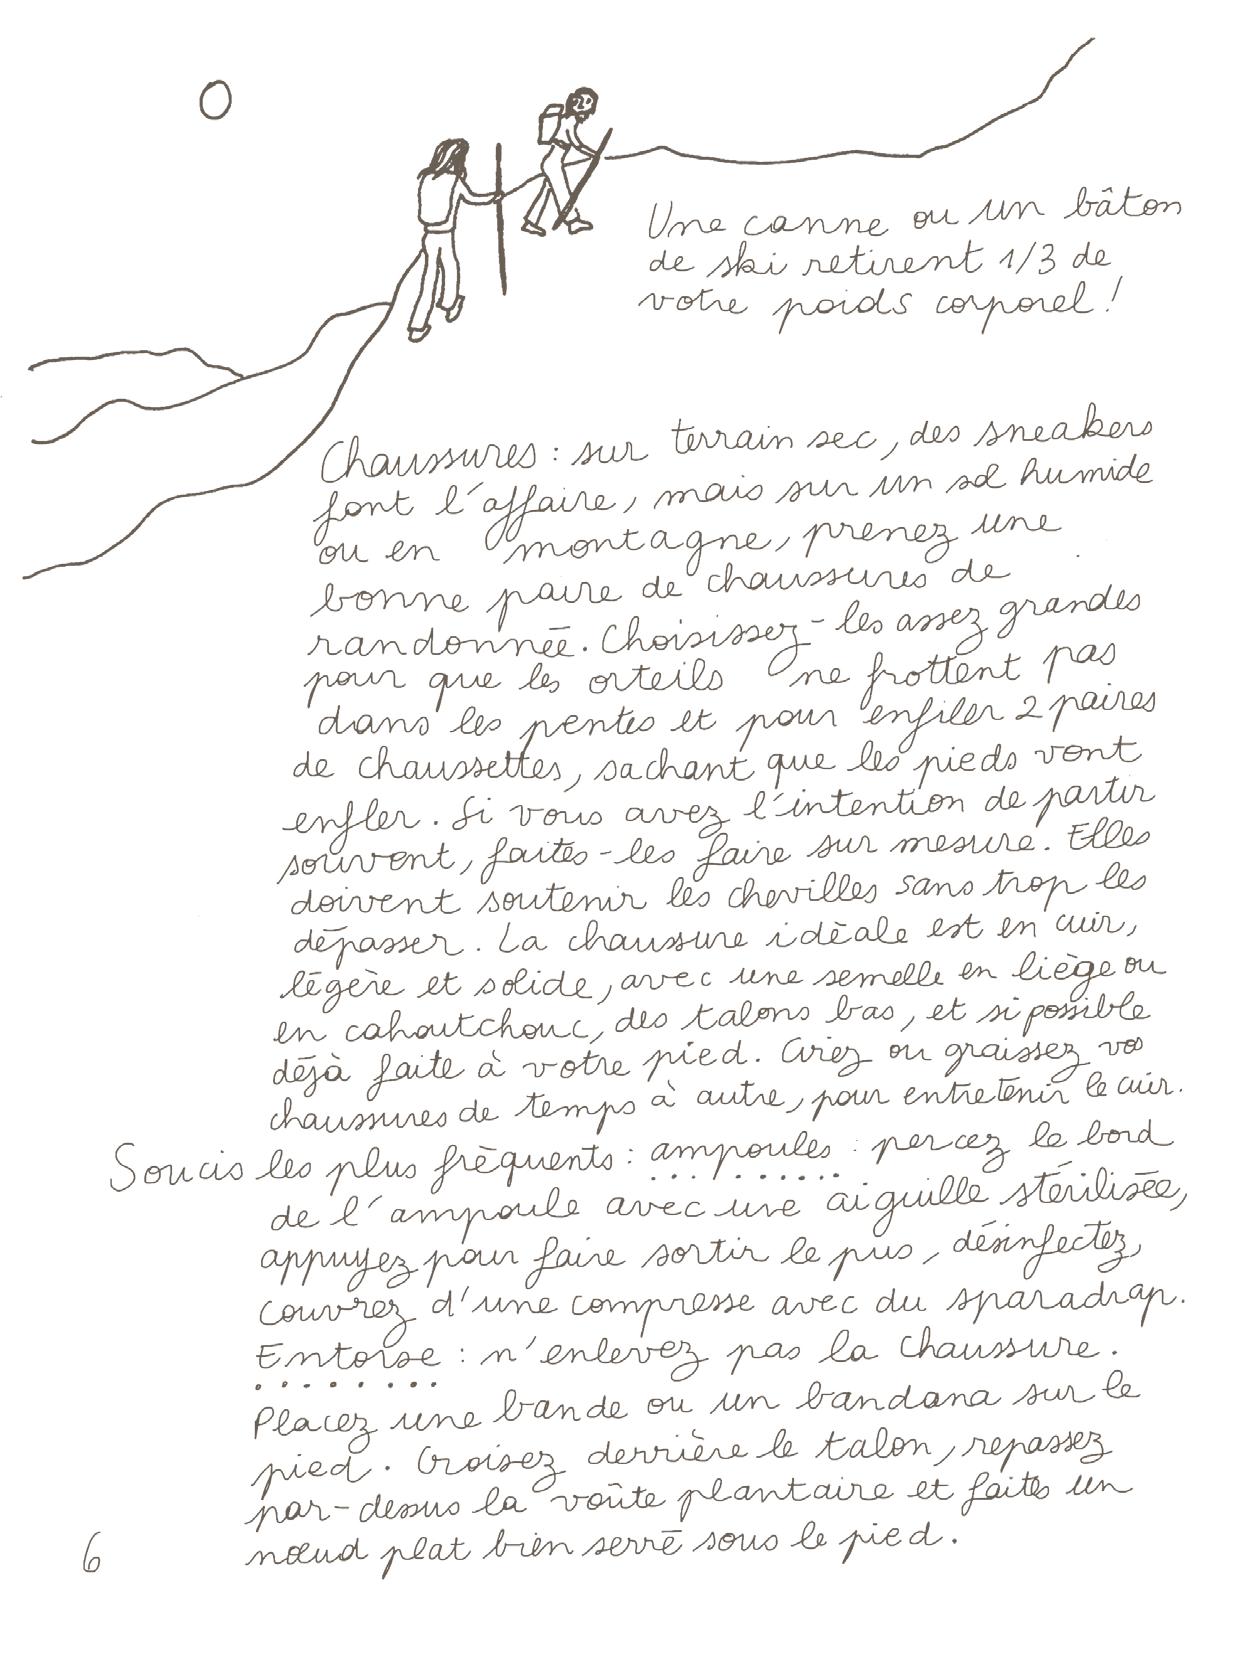 Une canne ou un bâton
de ski retirent 1/3 de
votre poids corporel !
Chaussures : sur terrain sec, des sneakers
font l'affaire, mais sur un sol humide
ou en montagne, prenez une
bonne paire de chaussures de
randonnée. Choisissez-les assez grandes
pour que les orteils ne frottent pas
dans les pentes et pour enfiler 2 paires
de chaussettes, sachant que les pieds vont
enfler. Si vous avez l'intention de partir
souvent, faites-les faire sur mesure. Elles
doivent soutenir les chevilles sans trop les
dépasser. La chaussure idéale est en cuir,
légère et solide, avec une semelle en liège ou
en cahoutchouc, des talons bas, et si possible
déjà faite à votre pied. Cirez ou graissez vos
chaussures de temps à autre, pour entretenir le cuir.
Soucis les plus fréquents : ampoules : percez le bord
de l'ampoule avec une aiguille stérilisée,
appuyez pour faire sortir le pus, désinfectez,
couvrez d'une compresse avec du sparadrap.
Entorse : n'enlevez pas la chaussure.
Placez une bande ou un bandana sur le
pied. Croisez derrière le talon, repassez
par-dessus la voûte plantaire et faites un
nœud plat bien serré sous le pied.
6